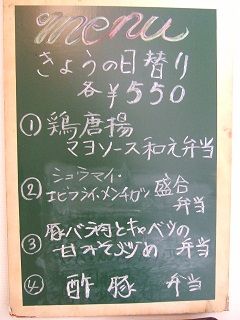 menu
きょうの日替り
各¥550
①鶏唐揚
マヨソース和え弁当
②シュウマイ・
エビフライ・メンチカツ盛合
弁当
③豚バラ肉とキャベツの
甘みそ炒め 弁当
④酢豚 弁当